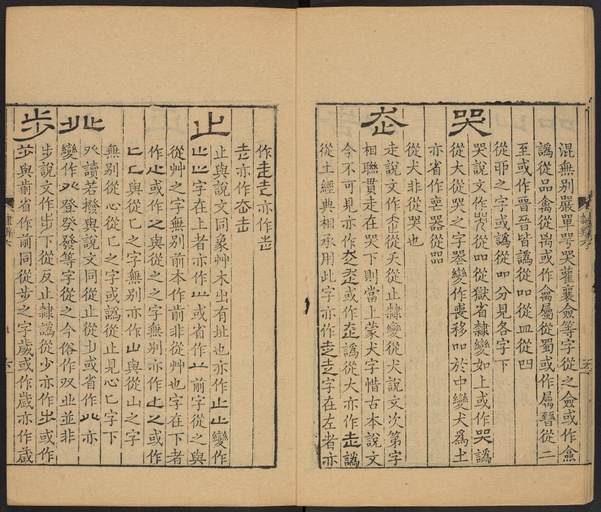 混無別嚴單咢哭蘿襄僉等字從之僉或作僉
譌從品禽從禼或作禽屬從蜀或作屬聲從二
至或作晉晉皆譌從吅從皿從四
從耶之字或譌從吅分見各字下
哭
哭說文作從吅從獄省隸變如上或作哭譌
從大從哭之字器變作喪移吅於中變犬為土
亦省作噩器從㗊
從犬非從哭也
走說文作從夭從止隸變從犬說文次第字
相聯貫走在哭下則當上蒙犬字惜古本說文
今不可見亦作或作譌從大亦作譌
從土經典相承用此字亦作字在左者亦
作走走亦作
亦作
止
止與說文同象艸木出有址也亦作止止變作
字在上者亦作或省作前字從之與
從艸之字無別前本作前非從艸也字在下者
作或作之與從之之字無別亦作止之或作
與從匕之字無別亦作山與從山之字
無別從心從匕之字或譌從止見心匕字下
癶
癶讀若撥與說文同從止從或省作亦
變作癶登癸發等字從之今俗作双業並非
步
步說文作步下從反止隸譌從少亦作或作
步與前省作前同從步之字歲或作歲亦作歲